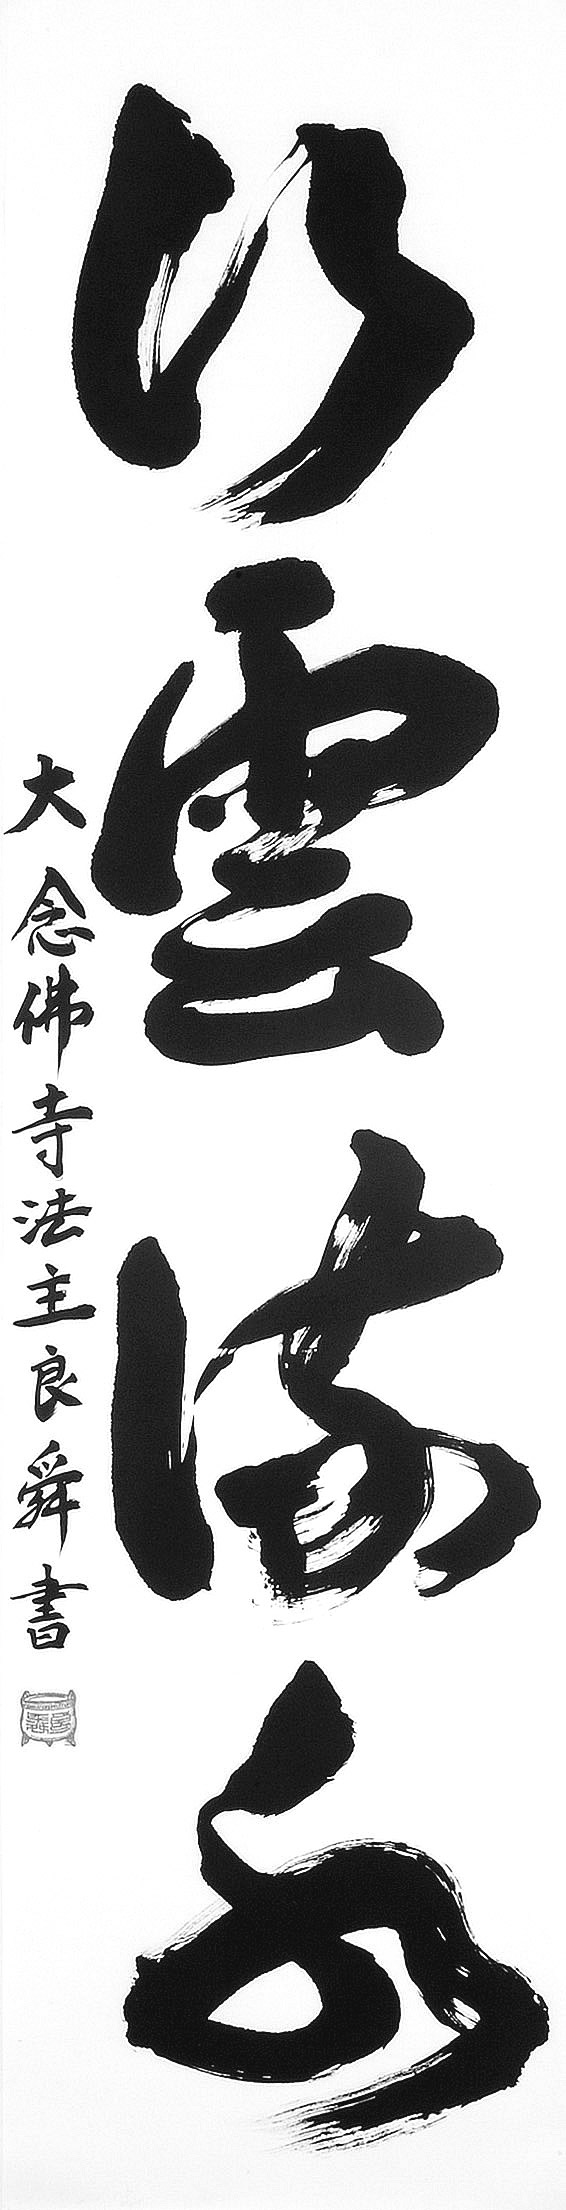 行雲流水
大念佛寺法主良舜書